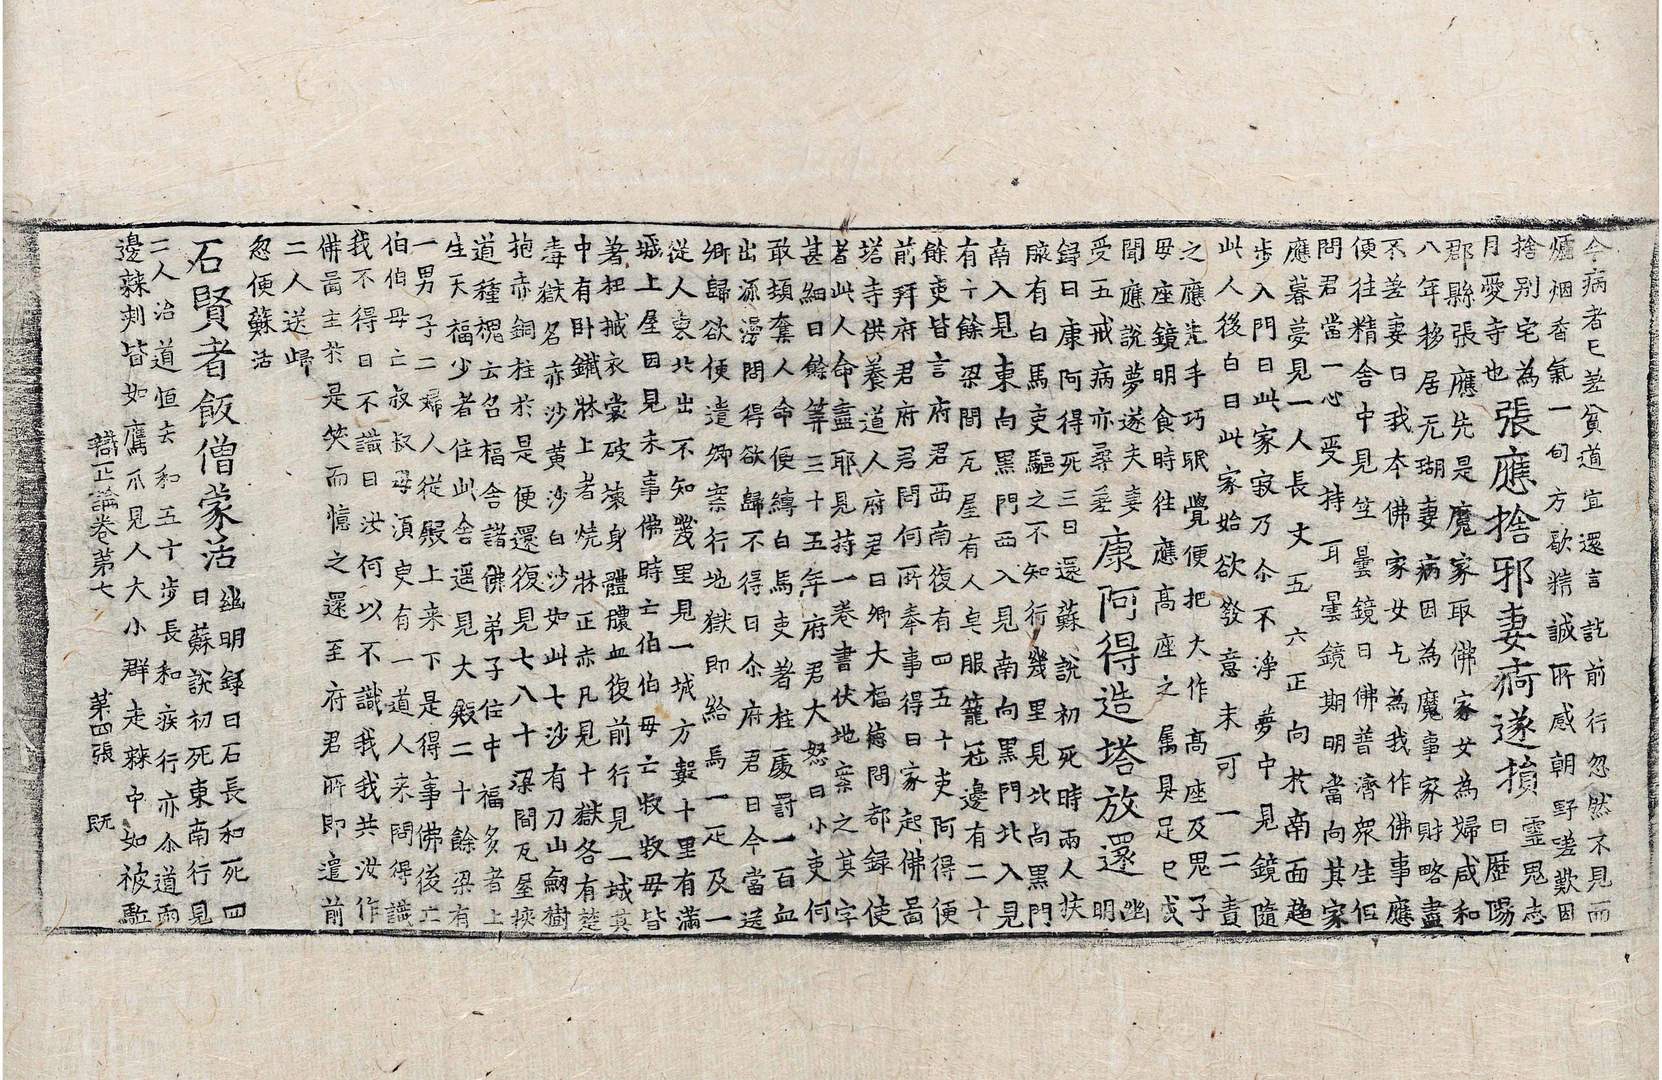 今病者已差貧道宜還言訖前行忽然不見而
爐烟香氣一旬方歇精誠所感朝野嗟歎因
捨别宅為 張應捨邪妻痾遂損 靈鬼志
月愛寺也 曰歴陽
郡縣張應先是魔家取佛家女為婦咸和
八年移居无瑚妻病因為魔事家財略盡
不差妻曰我本佛家女乞為我作佛事應
便往精舍中見竺曇鏡曰佛普濟衆生但
問君當一心受持耳曇鏡期明當向其家
應暮夢見一人長丈五六正向於南面趍
步入門曰此家寂乃尒不淨夢中見鏡隨
此人後白曰此家始欲發意未可一二責
之應先手巧眠覺便把火作高座及鬼子
母座鏡明食時往應高座之屬具足已成
聞應說夢遂夫妻 康阿得造塔放還 幽
受五戒病亦尋差 明
録曰康阿得死三日還蘇說初死時兩人扶
腋有白馬吏驅之不知行幾里見北向黒門
南入見東向黒門西入見南向黒門北入見
有十餘梁間瓦屋有人皂服籠冠邊有二十
餘吏皆言府君西南復有四五十吏阿得便
前拜府君府君問何所奉事得曰家起佛啚
塔寺供養道人府君曰卿大福德問都録使
者此人命盡耶見持一卷書伏地案之其字
甚細曰餘筭三十五年府君大怒曰小吏何
敢頓奪人命便縛白馬吏著柱處罰一百血
出流漫問得欲歸不得曰尒府君曰今當送
卿歸欲便遣卿案行地獄即給馬一疋及一
從人東北出不知幾里見一城方數十里有滿
城上屋因見未事佛時亡伯伯毋亡叔叔毋皆
著杻械衣裳破壞身體膿血復前行見一城其
中有卧鐵牀上者燒牀正赤凡見十獄各有楚
毒獄名赤沙黄沙白沙如此七沙有刀山劒樹
抱赤銅柱於是便還復見七八十梁間瓦屋挾
道種槐云名福舍諸佛弟子住中福多者上
生天福少者住此舍遥見大殿二十餘梁有
一男子二婦人從殿上来下是得事佛後亡
伯伯毋亡叔叔毋湏臾有一道人来問得識
我不得曰不識曰汝何以不識我我共汝作
佛啚主於是笑而憶之還至府君所即遣前
二人送歸
忽便蘇活
石賢者飯僧蒙活 幽明録曰石長和死四
日蘇說初死東南行見
二人治道恒去和五十步長和疾行亦尒道兩
邊棘刺皆如鷹爪見人大小群走棘中如被駈
辯正論卷第七 第四張 旣